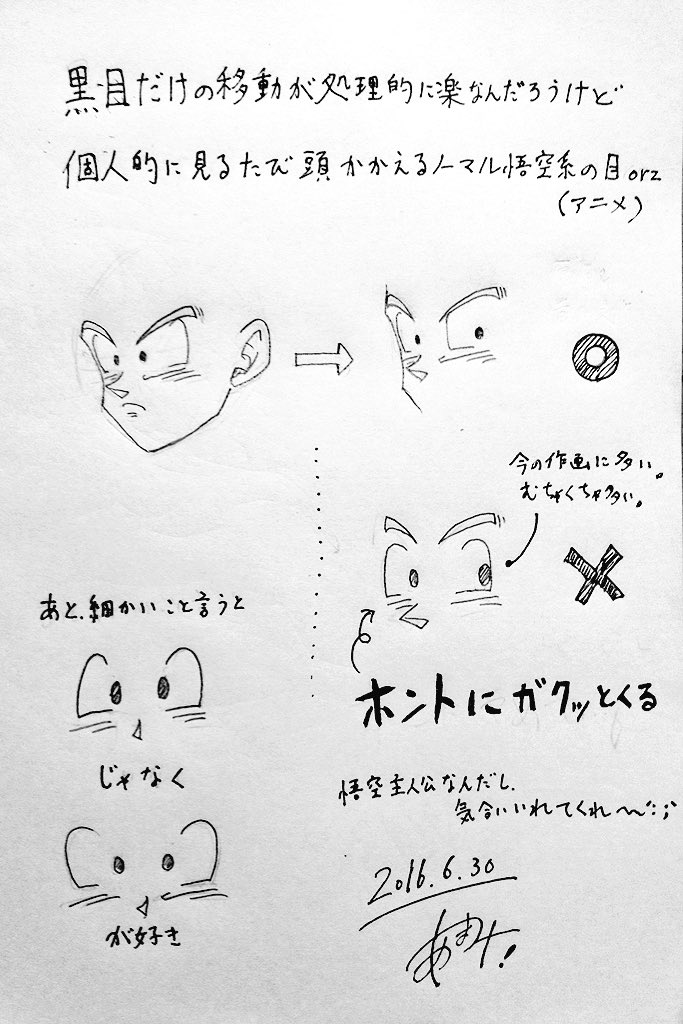 黒目だけの移動が処理的に楽なんだろうけど
個人的に見るたび頭かかえるノーマル悟空系の目orz
(アニメ)
今の作画に多い。
むちゃくちゃ多い。
ホントにガクッとくる
あと、細かいこと言うと
じゃなく
が好き
悟空主人公なんだし、
気合いいれてくれ〜
2016.6.30